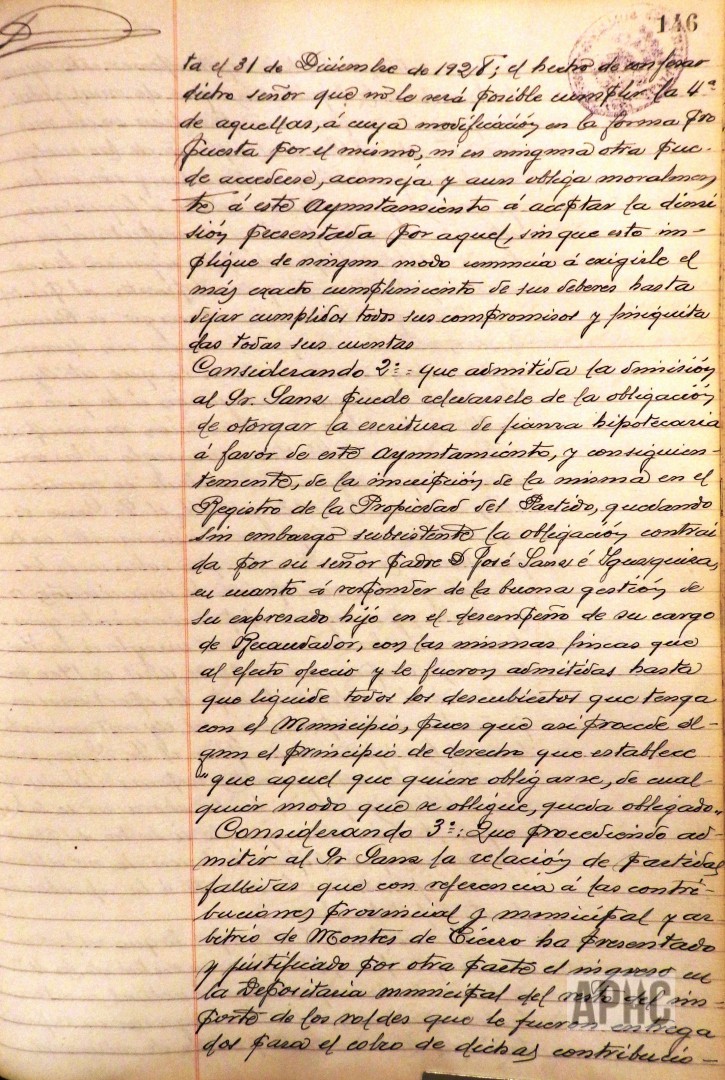 146
ta el 31 de Diciembre de 1928; el hecho de confesar
dicho señor que no le será posible cumplir la 4ª
de aquellas, á cuya modificación en la forma pro
puesta por el mismo, ni en ninguna otra pue-
de accederse, aconseja y aun obliga moralmen
te á este Ayuntamiento á aceptar la dimi
sión presentada por aquel, sin que esto im-
plique de ningun modo renuncia á exigirle el
más exacto cumplimiento de sus deberes hasta
dejar cumplidos todos sus compromisos y finiquita
das todas sus cuentas
Considerando 2º: que admitida la dimisión
al Sr. Sanz puede relevarsele de la obligación
de otorgar la escritura de fianza hipotecaria
á favor de este Ayuntamiento, y consiguien-
temente, de la inscripción de la misma en el
Registro de la Propiedad del Partido, quedando
sin embargo subsistente la obligación contrai
da por su señor padre D José Sanz é
en cuanto á responder de la buena gestión de
su expresado hijo en el desempeño de su cargo
de Recaudador, con las mismas fincas que
al efecto ofreció y le fueron admitidas hasta
que liquide todos los descubiertos que tenga
con el Municipio, pues que asi procede se-
gun el principio de derecho que establece
"que aquel que quiere obligarse, de cual
quier modo que se obligue, queda obligado"
Considerando 3º: Que procediendo ad-
mitir al Sr Sanz la relación de partidas
fallidas que con referencia á las contri-
buciones provincial y municipal y ar
bitrio de Montes de Cícero ha presentado
y justificado por otra parte el ingreso en
la Depositaria municipal del resto del im-
porte de los valdes que le fueron entrega
dos para el cobro de dichas contribucio-
APHC